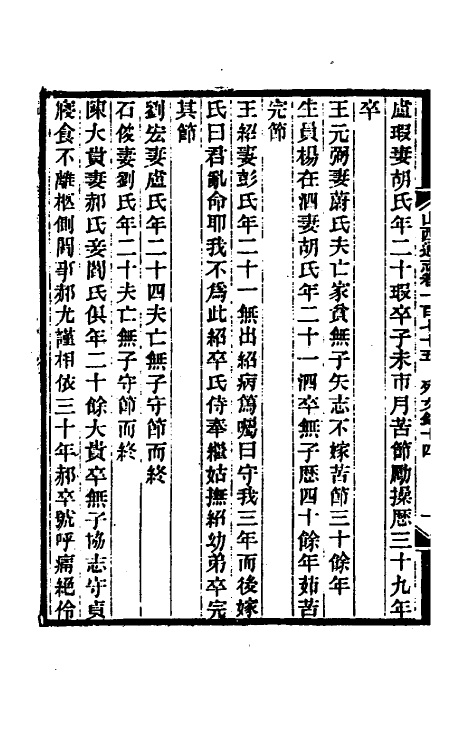 山西通志卷一百七十五 列女錄十四 一
盧瑕妻胡氏年二十瑕卒子未市月苦節勵操歷三十九年
卒
王元弼妻蔚氏夫亡家貧無子矢志不嫁苦節三十餘年
生員楊在泗妻胡氏年二十一泗卒無子歷四十餘年茹苦
完節
王紹妻彭氏年二十一無出紹病篤囑曰守我三年而後嫁
氏曰君亂命耶我不爲此紹卒氏侍奉繼姑撫紹幼弟卒完
其節
劉宏妻盧氏年二十四夫亡無子守節而終
石俊妻劉氏年二十夫亡無子守節而終
陳大貴妻郝氏妾閻氏俱年二十餘大貴卒無子協志守貞
寢食不離柩側閻事郝尤謹相依三十年郝卒號呼痛絕伶